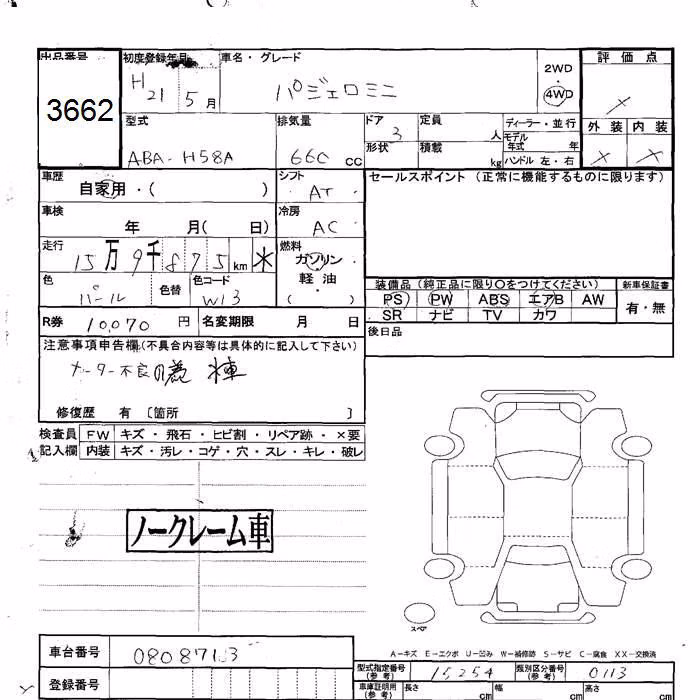 出品番号
3662
初度登録年月
H21 5月
車名・グレード
パジェロミニ
2WD
4WD
評価点
×
型式
ABA-H58A
排気量
660 cc
ドア
3
形状
定員
人
積載
kg
ディーラー・並行
モデル年式 年
ハンドル 左・右
外装 内装
× ×
車歴
自家用・( )
シフト
AT
セールスポイント (正常に機能するものに限ります)
車検
年 月( 日)
冷房
AC
走行
15万9千875km *
燃料
ガソリン
軽油
( )
色
パール
色替
色コード
W13
装備品(純正品に限り○をつけてください)
新車保証書
PS PW ABS エアB AW
SR ナビ TV カワ
有・無
R券 10,070 円
名変期限 月 日
後日品
注意事項申告欄(不具合内容等は具体的に記入して下さい)
メーター不良
修復歴 有 〔箇所 〕
検査員 FW キズ・飛石・ヒビ割・リペア跡・×要
記入欄 内装 キズ・汚レ・コゲ・穴・スレ・キレ・破レ
ノークレーム車
スペア
A-キズ E-エクボ U-凹み W-補修跡 S-サビ C-腐食 XX-交換済
車台番号
登録番号
型式指定番号(参考) 15254
類別区分番号(参考) 0113
車庫証明用(参考) 長さ cm 幅 cm 高さ cm